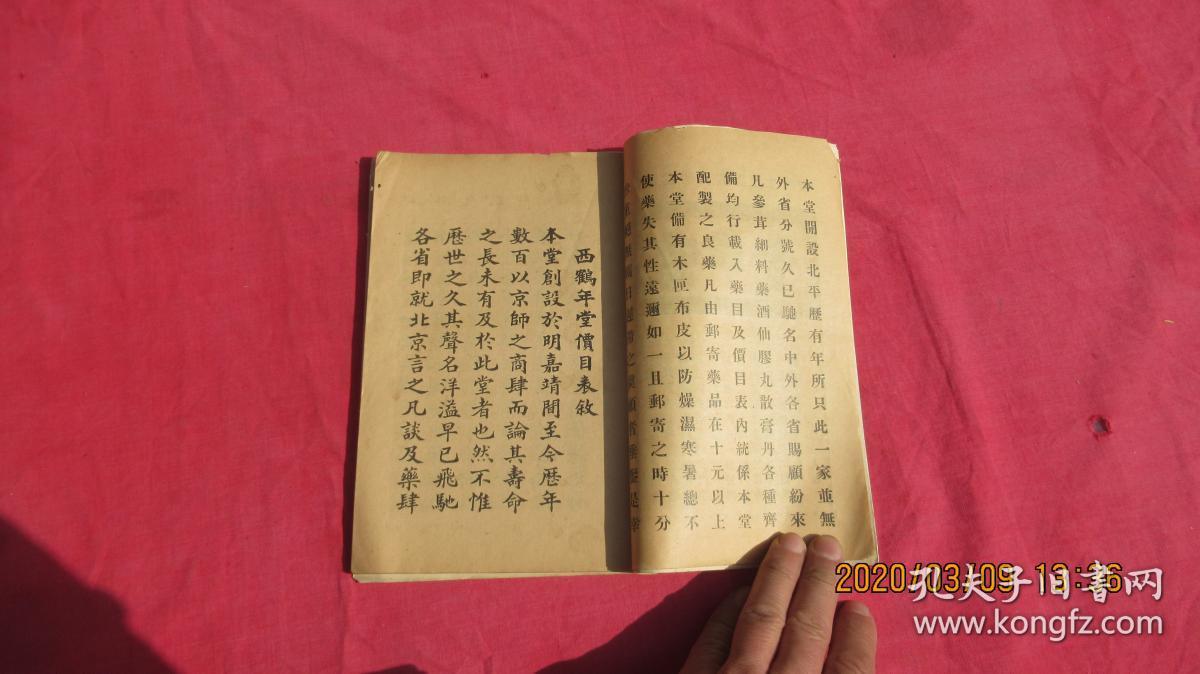 本堂開設北平歷有年所只此一家並無
外省分號久已馳名中外各省賜顧紛來
凡參茸細料藥酒仙膠丸散膏丹各種齊
備均行載入藥目及價目表內統係本堂
配製之良藥凡由郵寄藥品在十元以上
本堂備有木匣布皮以防燥濕寒暑總不
使藥失其性遠邇如一且郵寄之時十分
西鶴年堂價目表敘
本堂創設於明嘉靖間至今歷年
數百以京師之商肆而論其壽命
之長未有及於此堂者也然不惟
歷世之久其聲名洋溢早已飛馳
各省即就北京言之凡談及藥肆
2020/03/09 13:36
孔夫子旧书网
www.kongfz.com